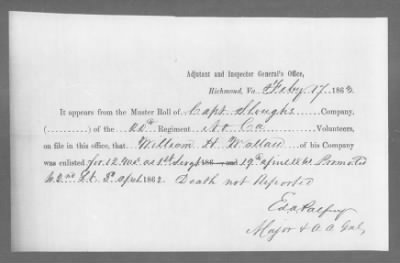 Adjutant and Inspector General's Office,
Richmond, Va. Feby. 17 1863.
It appears from the Muster Roll of Capt. Sloughs Company,
(..........) of the Regiment No Ca Volunteers,
on file in this office, that William H. Wallace of his Company
was enlisted for 12 mos as 1st Sergt 186 and 19th april 1861 Promoted
to 2nd Lt. april 1862. Death not Reported
Ed. A. Palfrey
Major & A. A. Genl,